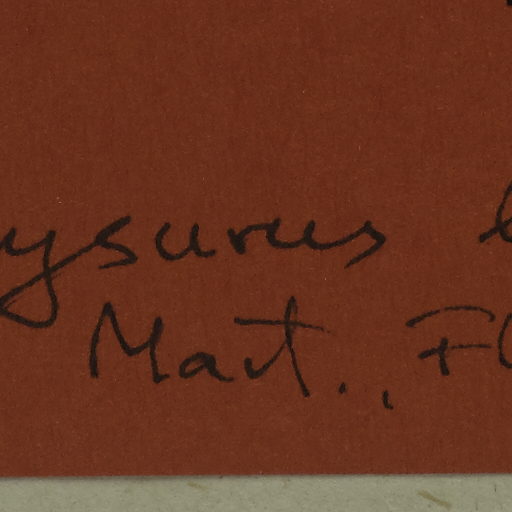 ysurus
Mart., Fl